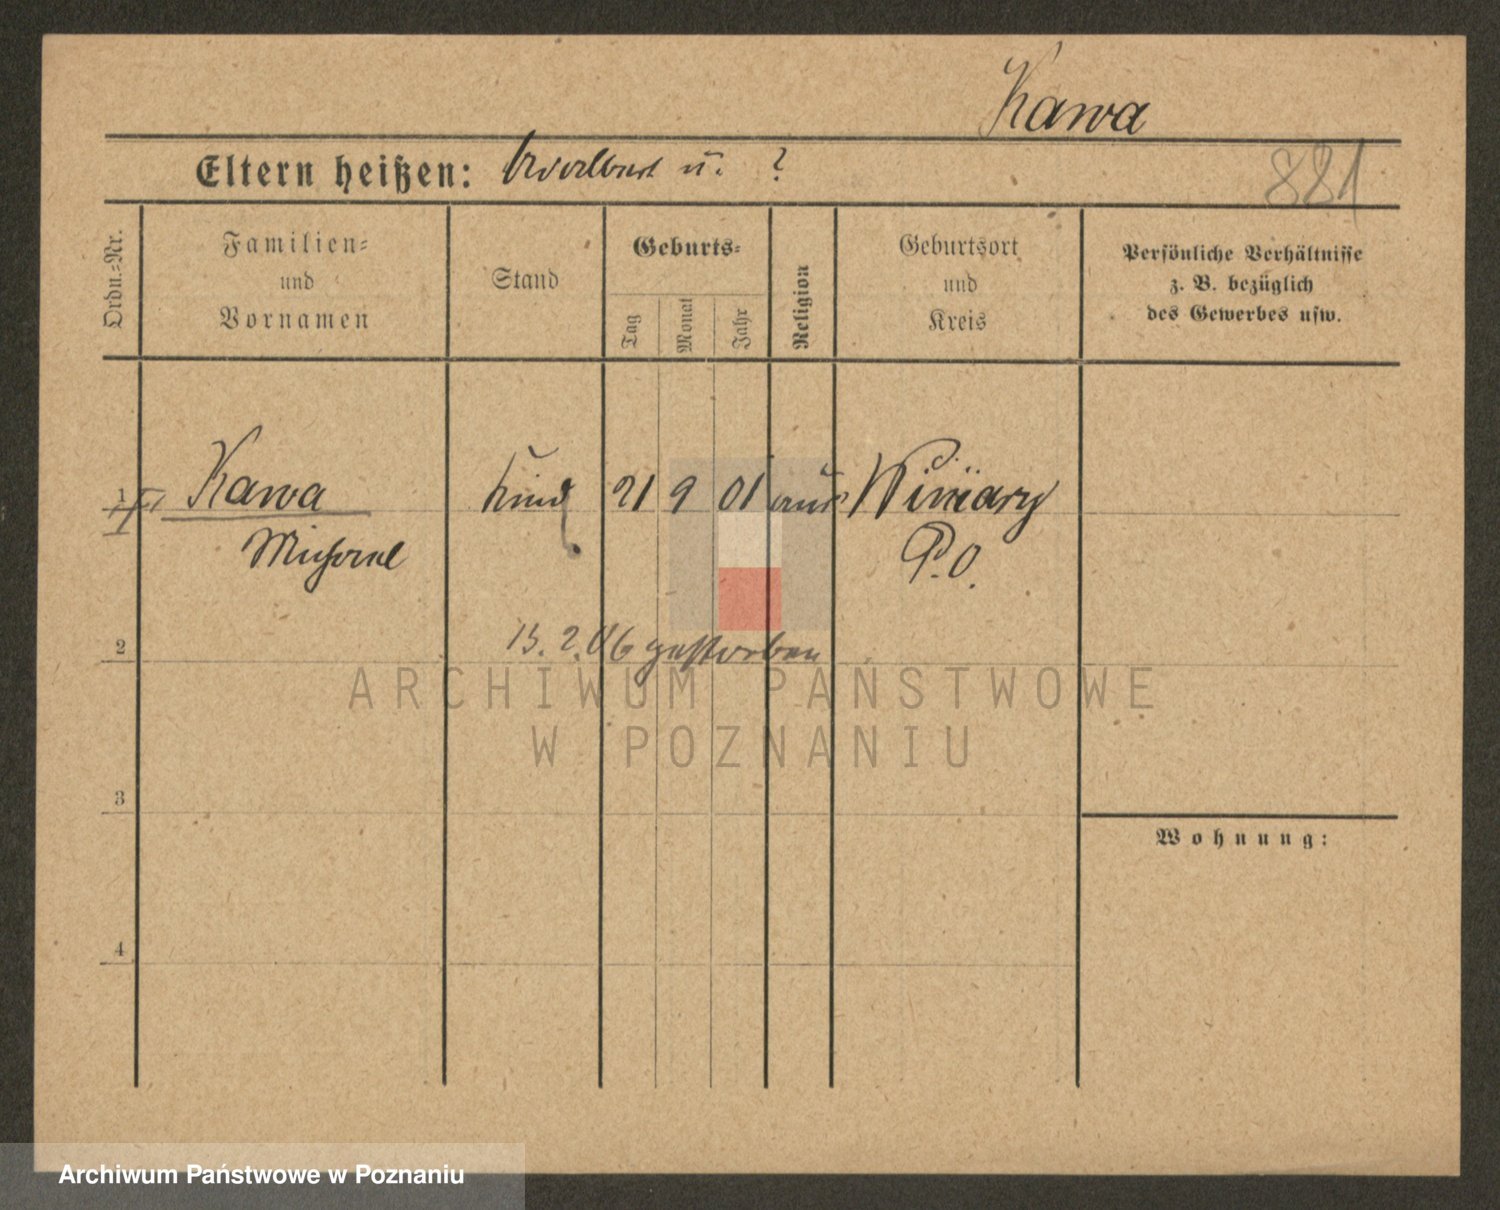 Kawa
Eltern heißen: Adalbert u. ?
881
Ordn.-Nr.
Familien-
und
Vornamen
Stand
Geburts-
Tag
Monat
Jahr
Religion
Geburtsort
und
Kreis
Persönliche Verhältnisse
z. B. bezüglich
des Gewerbes usw.
1 Kawa Kind 21 9 01 aus Winiary
Michael P.O.
15.2.06 gestorben
2
ARCHIWUM PAŃSTWOWE
W POZNANIU
3
Wohnung:
4
Archiwum Państwowe w Poznaniu